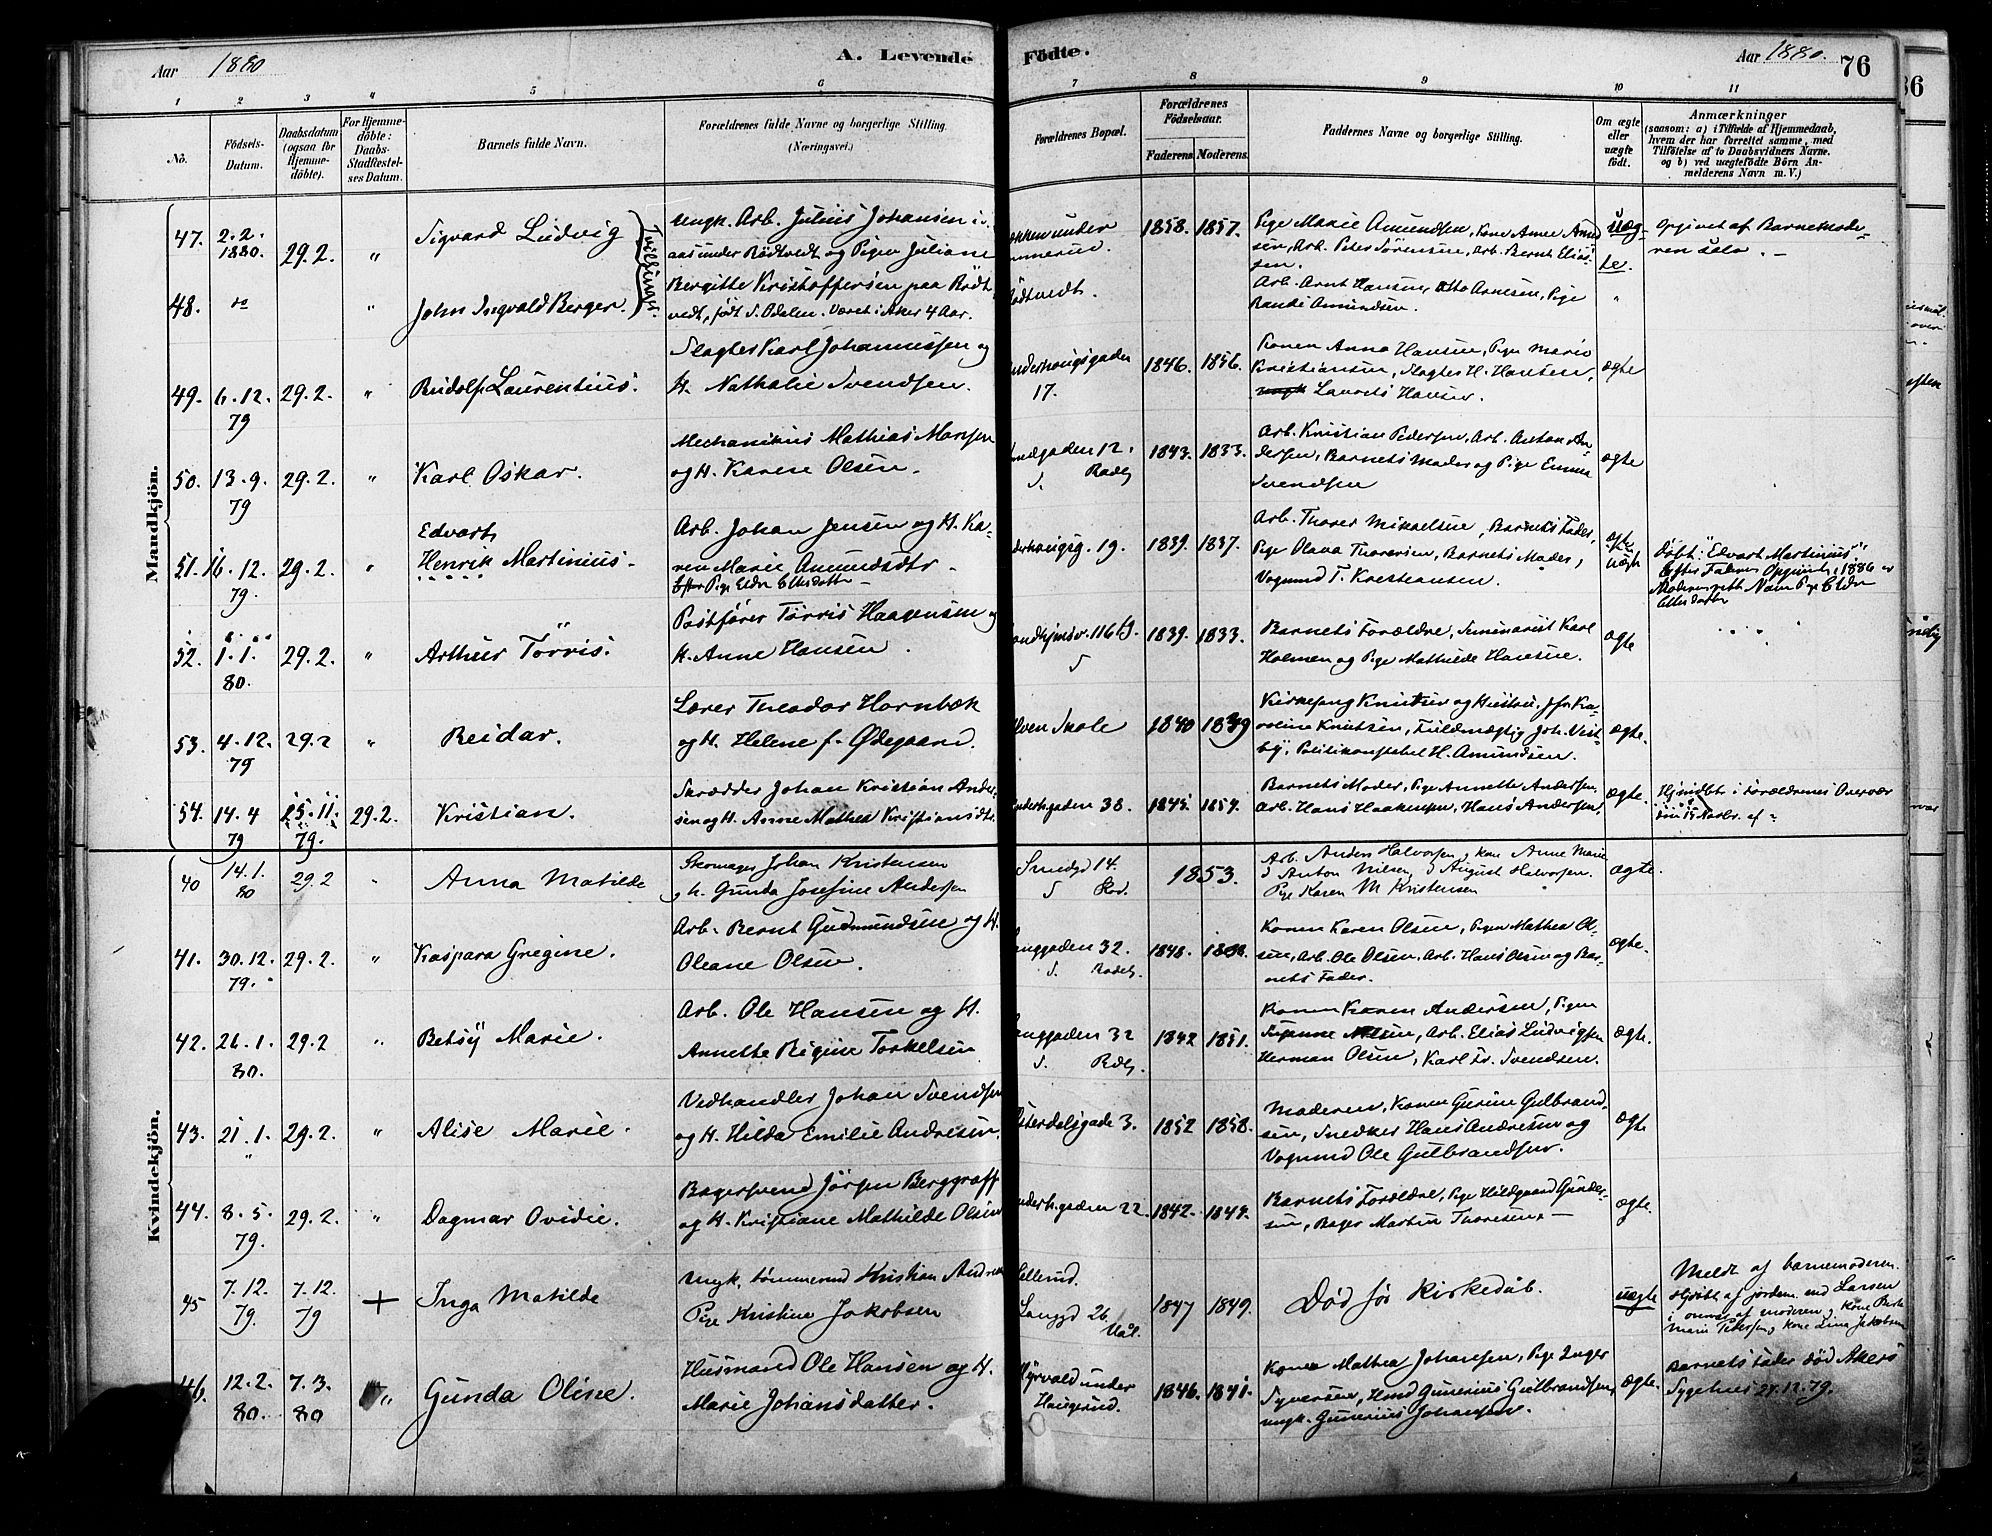 Aar 1880
A. Levende Födte.
Aar 1880.
76
1 2 3 4 5 6 7 8 9 10 11
No.
Födsels-Datum.
Daabsdatum (ogsaa for Hjemme-döbte).
For Hjemme-döbte: Daabs-Stadfæstel-ses Datum.
Barnets fulde Navn.
Forældrenes fulde Navne og borgerlige Stilling.
(Næringsvei.)
Forældrenes Bopæl.
Forældrenes Födselsaar.
Faderens. Moderens.
Faddernes Navne og borgerlige Stilling.
Om ægte eller uægte födt.
Anmærkninger
(saasom: a) i Tilfælde af Hjemmedaab,
hvem der har forrettet samme, med
Tilföielse af to Daabsvidners Navne.
og b) ved uægtefödte Börn An-
melderens Navn m. V.)
Mandkjön.
47. 2.2. 1880. 29.2. " Sigvard Ludvig
Tvillinger
Ungk. Arb. Julius Johansen i
aas under Rödtvedt og Pigen Juliane
1858. 1857.
Pige Marie Amundsen, Kone Anne Amund
sen, Arb. Peter Sörensen, Arb. Bernt Elias-
sen.
uæg-
te.
Opgivet af Barnemode-
ren selv. -
48. do " John Ingvald Berger.
Bergitte Kristoffersen paa Rödt
vedt, födt S. Odalen. Været i Aker 4 Aar.
ödtvedt.
Arb. Arnt Hansen, Otto Arnesen, Pige
Randi Amundsen.
"
49. 6.12. 79 29.2. " Rudolf Laurentius.
Slagter Karl Johannessen og
H. Nathalie Svendsen.
17.
1846. 1856.
Konen Anna Hansen, Pige Marie
Kristiansen, Slagter H. Hansen,
Laurits Hansen.
ægte
50. 13.9. 79 29.2. " Karl Oskar.
Mechanikus Mathias Monsen
og H. Karen Olsen.
12.
1843. 1833.
Arb. Kristian Pedersen, Arb. Anton An-
dersen, Barnets Moder og Pige Emma
Svendsen
ægte
51. 16.12. 79. 29.2. " Edvart
Henrik Martinius.
Arb. Johan Jensen og H. Ka-
ren Marie Amundsdtr
19.
1839. 1837.
Arb. Thorer Mikaelsen, Barnets Fader,
Pige Olava Thorersen, Barnets Moder,
Vognmd T. Kristiansen.
ægte
uægte
Döbt: "Edvart Martinius".
52. 1.1. 80. 29.2. " Arthur Törris.
Postförer Törris Haagensen og
H. Anne Hansen.
1839. 1833.
Barnets Forældre, Seminarist Karl
Holmen og Pige Mathilde Hansen.
ægte
53. 4.12. 79 29.2 " Reidar.
Lærer Theodor Hornbæk
og H. Helene f. Ødegaard.
lven Skole
1840 1849
Kirkesang Knutsen og Hustru, Jfr. Ka-
roline Knutsen, Fuldmægtig Joh. Vest-
by, Politikonstabel H. Amundsen.
ægte.
54. 14.4 79 15.11. 79. 29.2. Kristian.
Skrædder Johan Kristian Ander-
sen og H. Anne Mathea Kristiansdtr.
38.
1845.
Barnets Moder, Pige Annette Andersen,
Arb. Hans Haakensen, Hans Andersen,
ægte.
Hjemdöbt i Forældrenes Overvær
Kvindekjön.
40 14.1. 80 29.2 " Anna Matilde
Skomager Johan Kristensen
og h. Gunda Josefine Andersen
Smedgd 14.
1853.
Arb. Anders Halvorsen, kone Anne Marie
Anton Nilsen, August Halvorsen.
Pige Karen M Kristensen
ægte.
41. 30.12. 79. 29.2. " Kaspara Gregine.
Arb. Bernt Gudmundsen og H.
Oleane Olsen.
anggaden 32.
1848.
Konen Karen Olsen, Pigen Mathea Ol-
sen, Arb. Ole Olsen, Arb. Hans Olsen og Bar-
nets Fader.
ægte.
42. 26.1. 80. 29.2 " Betsÿ Marie.
Arb. Ole Hansen og H.
Annette Regine Torkelsen
anggaden 32
1842 1851.
Konen Karen Andersen, Pigen
Arb. Elias Ludvigsen
Herman Olsen, Karl Fr. Svendsen.
ægte.
43. 21.1. " 29.2. " Alise Marie.
Vedhandler Johan Svendsen
og H. Hilda Emilie Andresen.
sterdalsgade 3.
1852 1858.
Moderen, Konen Gurine Gulbrand-
sen, Snedker Hans Andresen og
Vognmd Ole Gulbrandsen.
ægte
44. 8.5. 79. 29.2. " Dagmar Ovidie.
Bagersvend Jörgen Berggraff
og H. Kristiane Mathilde Olsen
22.
1842. 1849.
Barnets Forældre, Pige Hildgaard Gunder-
sen, Bager Martin Thoresen. -
ægte.
45 7.12. 79. 7.12. 79 + Inga Matilde
Ungk. tömmermd Kristian Andre
Pige Kristine Jakobsen
Langgd 26.
1847 1849.
Död för kirkedåb.
uægte
Meldt af barnemoderen.
Hjdöbt af jordem. Larsen
i overvær af moderen og kone
Marie Pedersen, kone Lina Jakobsen
46. 12.2. 80. 7.3. 80 " Gunda Oline.
Husmand Ole Hansen og H.
Marie Johansdatter.
Myrvold under
Haugerud.
1846. 1841.
Kone Mathea Johansen, Pige Inger
Syversen, Hmd Gunerius Gulbrandsen,
ungk. Gunerius Johansen.
ægte.
Barnets Fader död Akers
Sygehus 27.12.79.